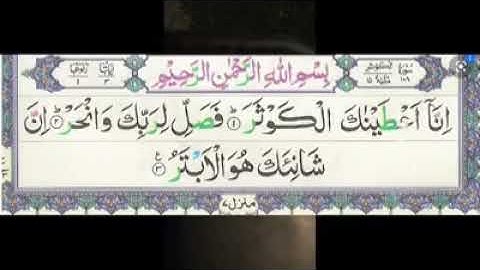 بِسْمِ اللهِ الرَّحْمٰنِ الرَّحِيْمِ
اِنَّاۤ اَعْطَيْنٰكَ الْكَوْثَرَ ﴿١﴾ فَصَلِّ لِرَبِّكَ وَانْحَرْ ﴿٢﴾ اِنَّ
شَانِئَكَ هُوَ الْاَبْتَرُ ﴿٣﴾
منزل ٧